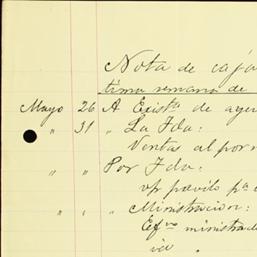 Nota de caja
tima semana de
Mayo 26 A Existª de ayer
" 31 " La Fda:
Ventas al por m
" " Por Fda:
v/p pavilo pª
" " " Ministracion:
Efvo ministrad